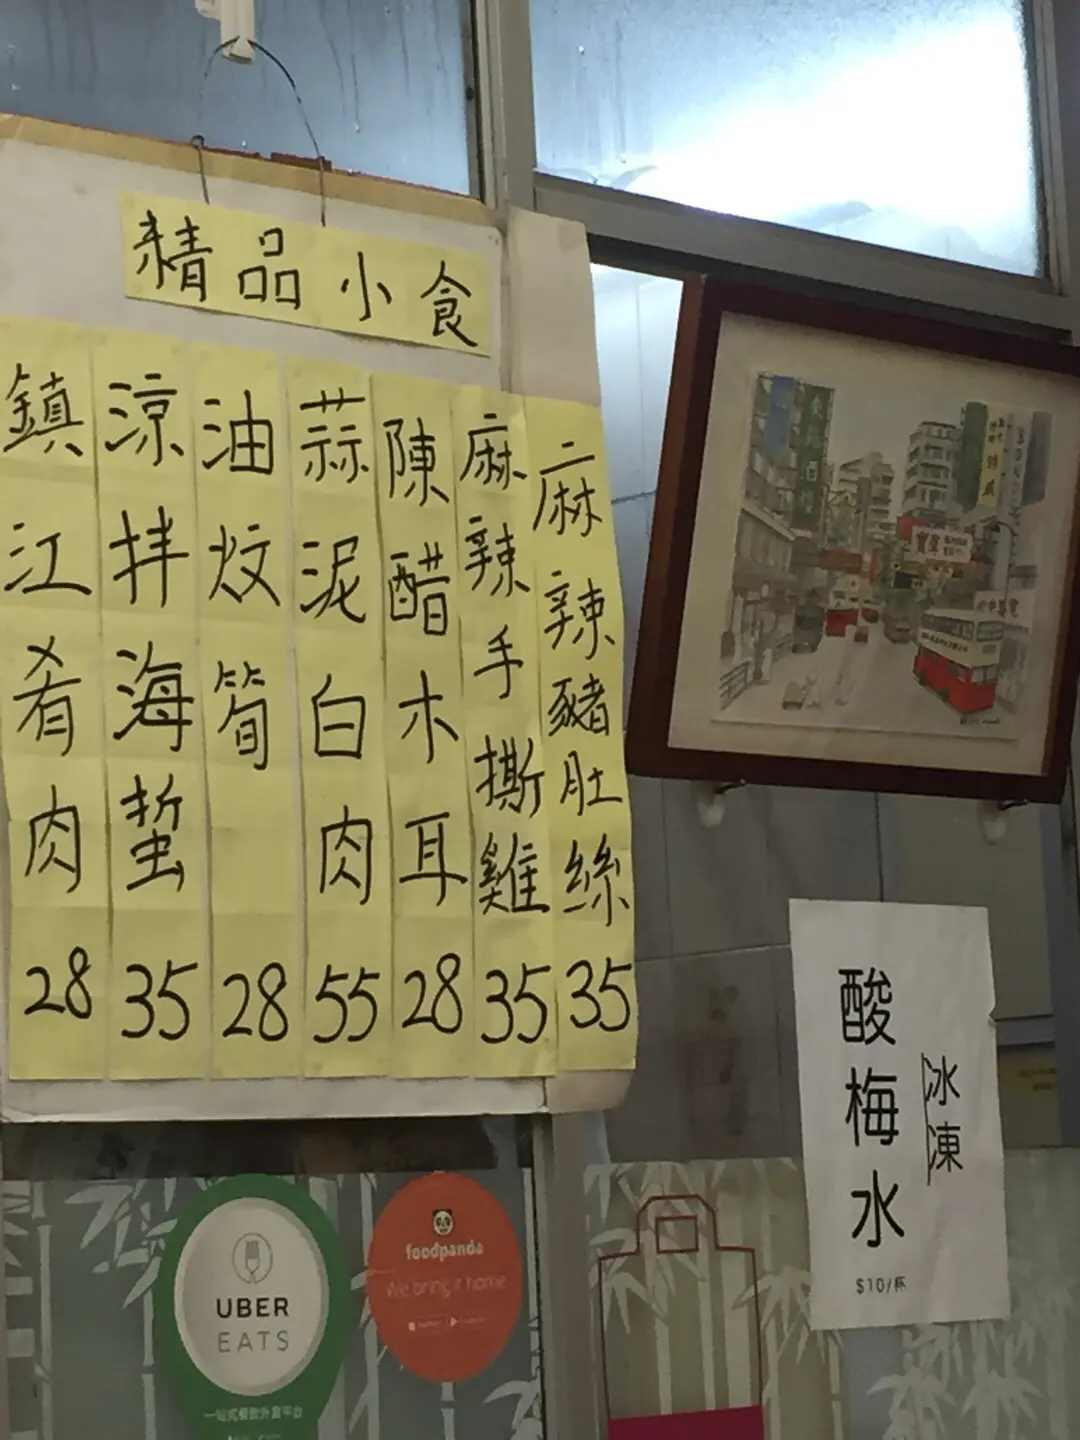 精品小食
麻辣豬肚絲 35
麻辣手撕雞 35
陳醋木耳 28
蒜泥白肉 55
油炆筍 28
涼拌海蜇 35
鎮江肴肉 28
冰凍
酸梅水
$10/杯
UBER
EATS
一站式餐飲外賣平台
foodpanda
We bring it home